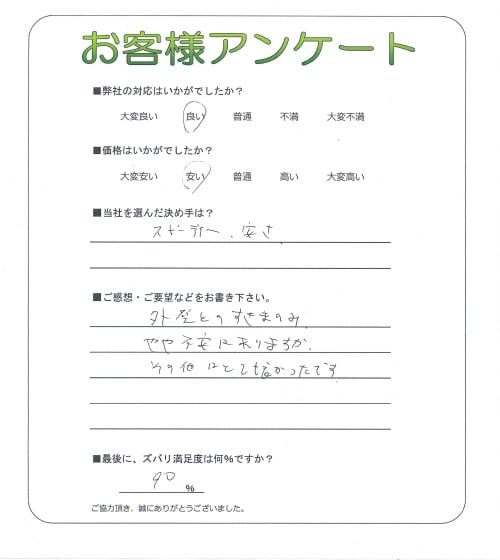 お客様アンケート
■弊社の対応はいかがでしたか？
大変良い 良い 普通 不満 大変不満
■価格はいかがでしたか？
大変安い 安い 普通 高い 大変高い
■当社を選んだ決め手は？
スピーディー、安さ
■ご感想・ご要望などをお書き下さい。
外壁とのすきまのみ
やや不安になりますが、
その他はとても良かったです
■最後に、ズバリ満足度は何％ですか？
90 %
ご協力頂き、誠にありがとうございました。